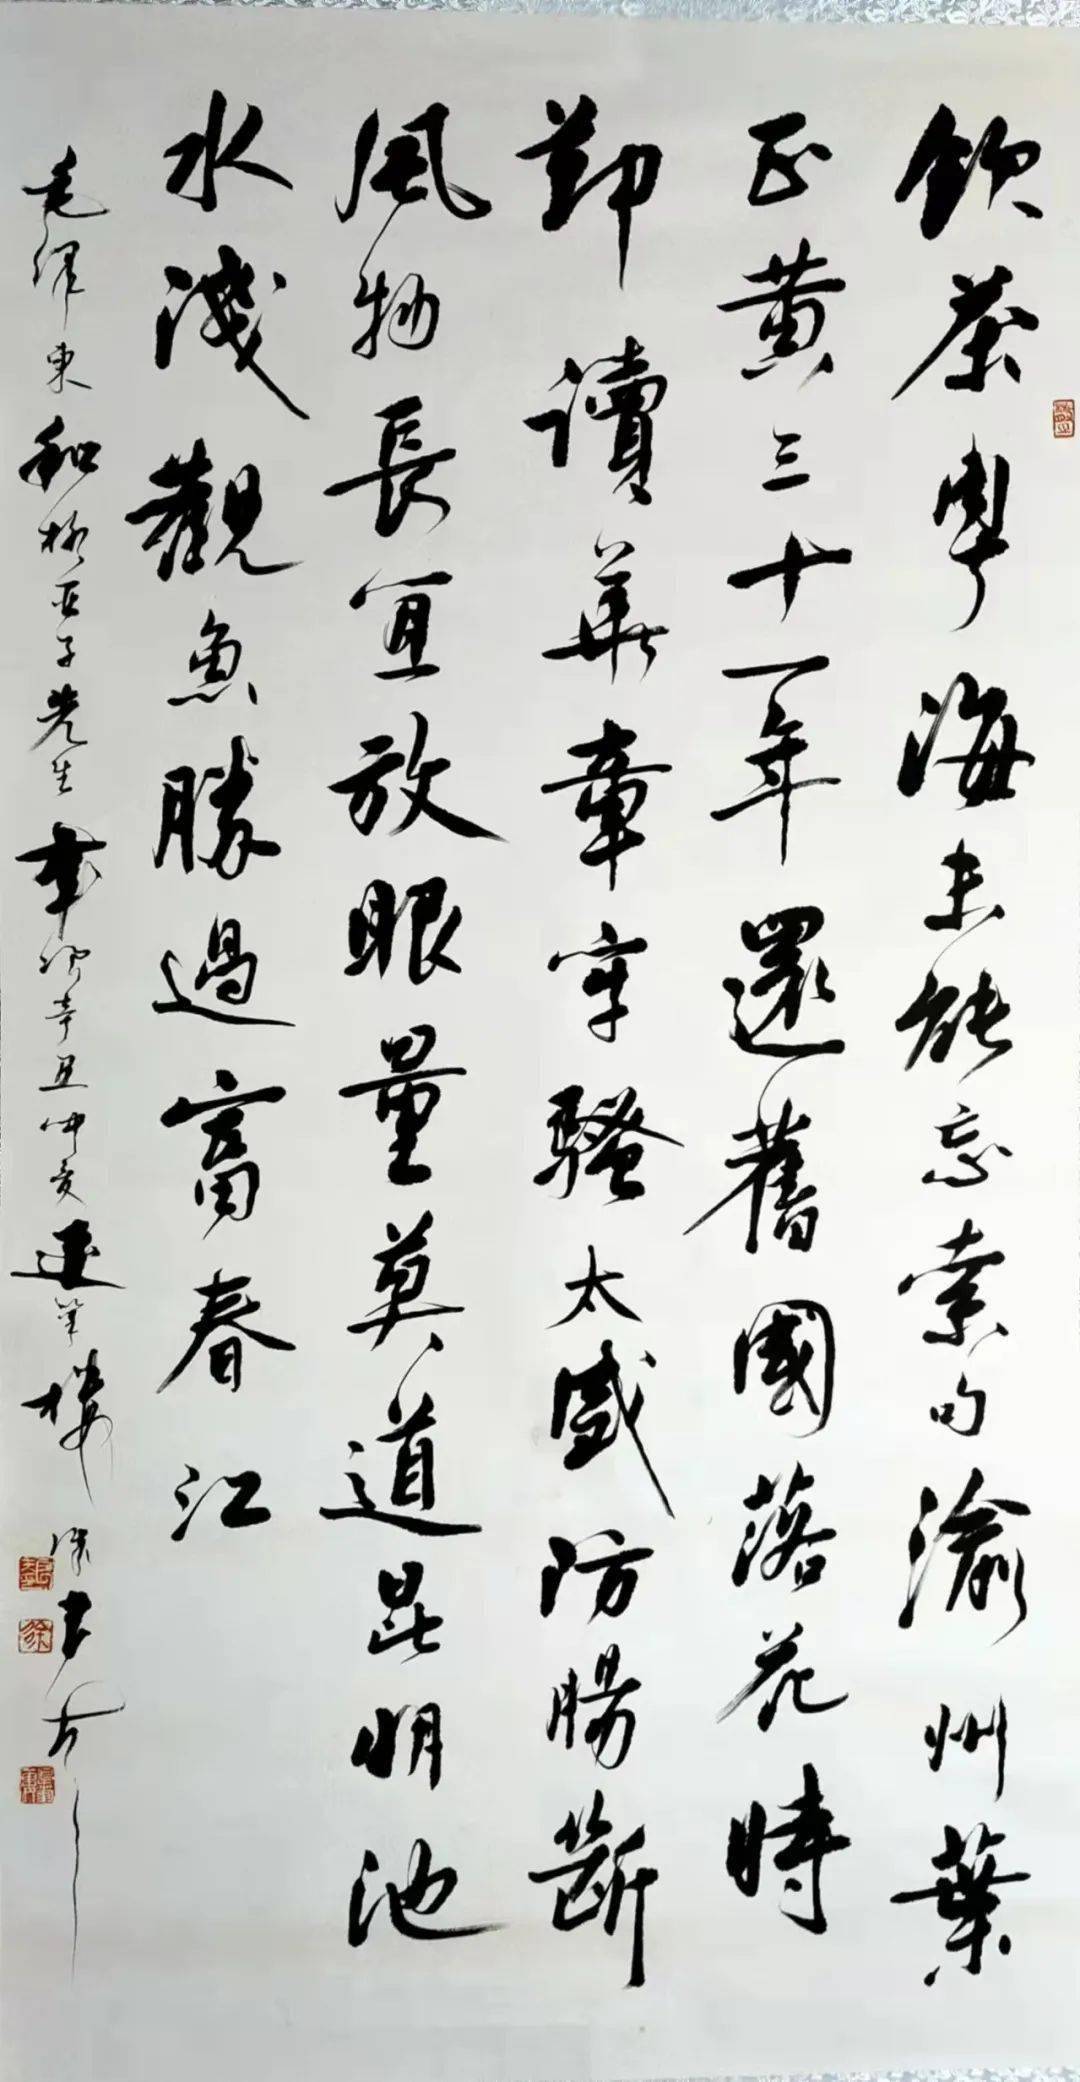 飲茶粵海未能忘索句渝州葉
正黃三十一年還舊國落花時
節讀華章牢騷太盛防腸斷
風物長宜放眼量莫道昆明池
水淺觀魚勝過富春江
毛澤東和柳亞子先生歲次辛丑仲夏